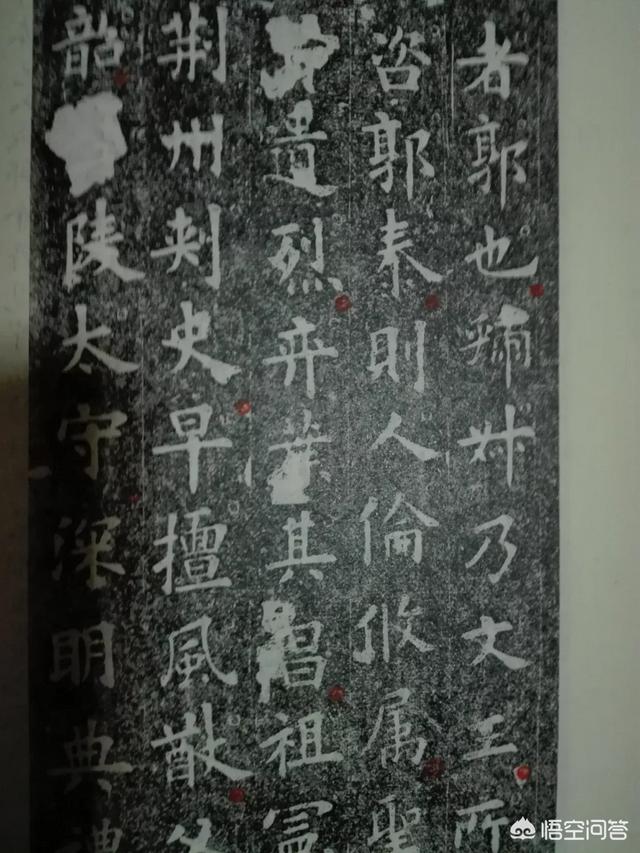 者郭也虢叔乃文王所
咨郭泰則人倫攸属聖
遺烈弈葉其昌祖
荆州刾史早擅風猷
韶陵太守深明典禮
悟空问答